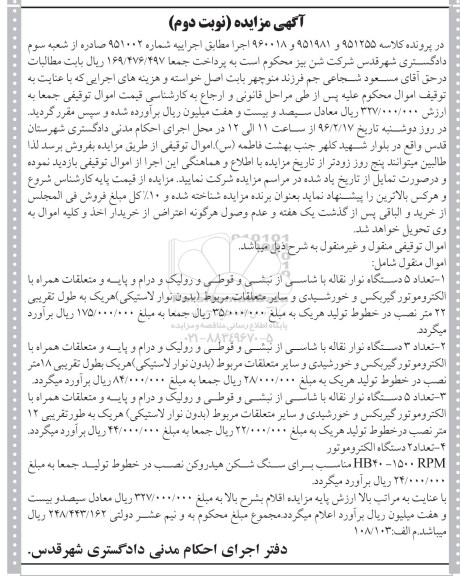 آگهی مزایده (نوبت دوم)
در پرونده کلاسه ۹۵۱۲۵۵ و ۹۵۱۹۸۱ و ۹۶۰۰۱۸ اجرا مطابق اجراییه شماره ۹۵۱۰۰۲ صادره از شعبه سوم
دادگستری شهرقدس شرکت شن بیز محکوم است به پرداخت جمعا ۱۶۹/۴۷۶/۴۹۷ ریال بابت مطالبات
درحق آقای مسعود شجاعی جم فرزند منوچهر بابت اصل خواسته و هزینه های اجرایی که با عنایت به
توقیف اموال محکوم علیه پس از طی مراحل قانونی و ارجاع به کارشناسی قیمت اموال توقیفی جمعا به
ارزش ۳۲۷/۰۰۰/۰۰۰ ریال معادل سیصد و بیست و هفت میلیون ریال برآورده شده و سپس مقرر گردید.
در روز دوشنبه تاریخ ۹۶/۲/۱۷ از ساعت ۱۱ الی ۱۲ در محل اجرای احکام مدنی دادگستری شهرستان
قدس واقع در بلوار شهید کلهر جنب بهشت فاطمه (س).اموال توقیفی از طریق مزایده بفروش برسد لذا
طالبین میتوانند پنج روز زودتر از تاریخ مزایده با اطلاع و هماهنگی این اجرا از اموال توقیفی بازدید نموده
و درصورت تمایل از تاریخ یاد شده در مراسم مزایده شرکت نمایید. مزایده از قیمت پایه کارشناس شروع
و هرکس بالاترین را پیشنهاد نماید بعنوان برنده مزایده شناخته شده و ۱۰٪ کل مبلغ فروش فی المجلس
از خرید و الباقی پس از گذشت یک هفته و عدم وصول هرگونه اعتراض از خریدار اخذ و کلیه اموال به
وی تحویل خواهد شد.
اموال توقیفی منقول و غیرمنقول به شرح ذیل میباشد.
اموال منقول شامل:
۱-تعداد ۵ دستگاه نوار نقاله با شاسی از نبشی و قوطی و رولیک و درام و پایه و متعلقات همراه با
الکتروموتور گیربکس و خورشیدی و سایر متعلقات مربوط (بدون نوار لاستیکی)هریک به طول تقریبی
۲۲ متر نصب در خطوط تولید هریک به مبلغ ۳۵/۰۰۰/۰۰۰ ریال جمعا به مبلغ ۱۷۵/۰۰۰/۰۰۰ ریال برآورد
میگردد.
۲-تعداد ۳ دستگاه نوار نقاله با شاسی از نبشی و قوطی و رولیک و درام و پایه و متعلقات همراه با
الکتروموتور گیربکس و خورشیدی و سایر متعلقات مربوط (بدون نوار لاستیکی)هریک بطول تقریبی ۱۸متر
نصب در خطوط تولید هر یک به مبلغ ۲۸/۰۰۰/۰۰۰ ریال جمعا به مبلغ ۸۴/۰۰۰/۰۰۰ ریال برآورد میگردد.
۳-تعداد ۵ دستگاه نوار نقاله با شاسی از نبشی و قوطی و رولیک و درام و پایه و متعلقات همراه با
الکتروموتور گیربکس و خورشیدی و سایر متعلقات مربوط (بدون نوار لاستیکی) هریک به طورتقریبی ۱۲
متر نصب درخطوط تولید هر یک به مبلغ ۲۲/۰۰۰/۰۰۰ ریال جمعا به مبلغ ۴۴/۰۰۰/۰۰۰ ریال برآورد میگردد.
۴-تعداد۲ دستگاه الکتروموتور
HB۴۰-۱۵۰۰ RPM مناسب برای سنگ شکن هیدروکن نصب در خطوط تولید جمعا به مبلغ
۲۴/۰۰۰/۰۰۰ ریال برآورد میگردد.
با عنایت به مراتب بالا ارزش پایه مزایده اقلام بشرح بالا به مبلغ ۳۲۷/۰۰۰/۰۰۰ ریال معادل سیصدو بیست
و هفت میلیون ریال برآورد اعلام میگردد.مجموع مبلغ محکوم به و نیم عشر دولتی ۲۴۸/۴۴۳/۱۶۲ ریال
میباشد.م الف:۱۰۸/۱۰۳
دفتر اجرای احکام مدنی دادگستری شهرقدس.
پایگاه اطلاع رسانی مناقصه و مزایده
۰۲۱-۸۸۳۴۹۶۷۰-۵